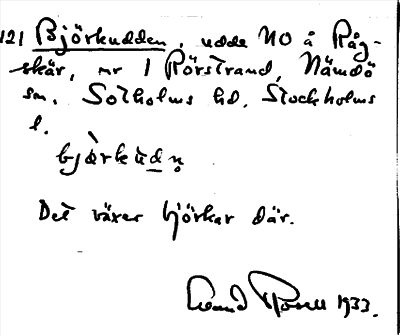 121 Björkudden, udde NO å Råg-
skär, nr 1 Rörstrand, Nämdö
sn. Sotholms hd. Stockholms
l.
bjàrkùdṇ
Det växer björkar där.
1933.